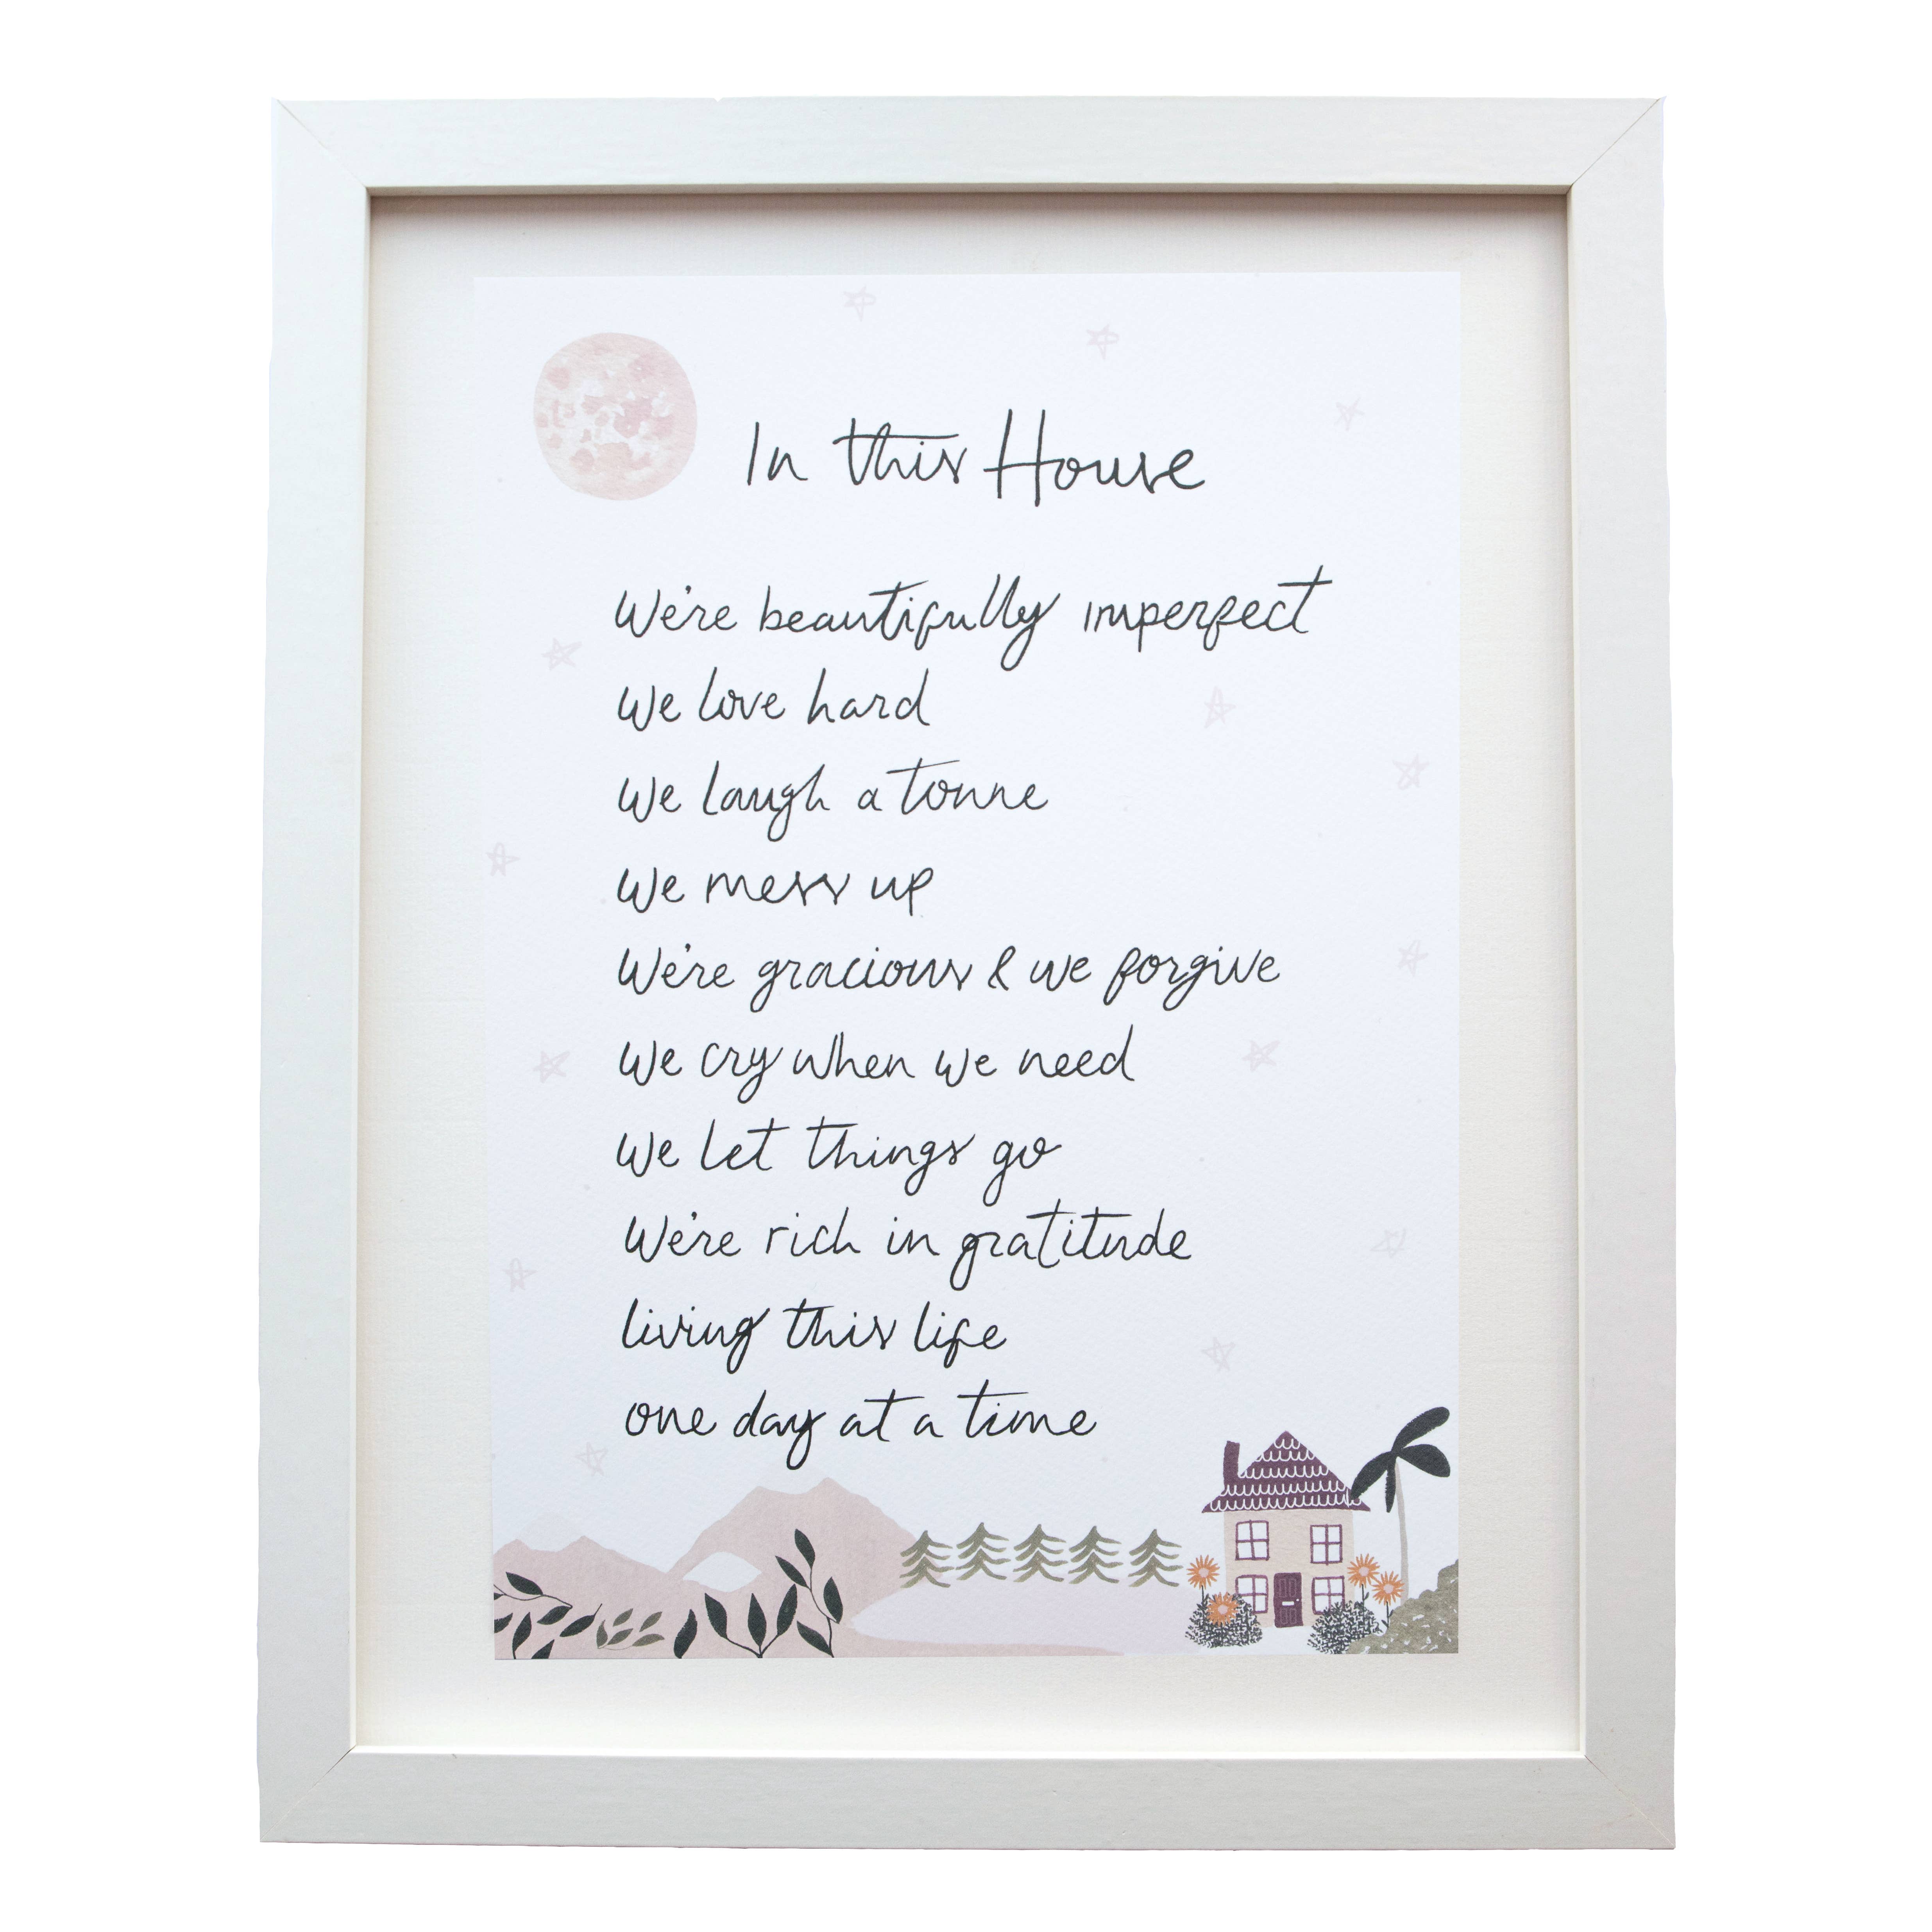 In this House
We're beautifully imperfect
We love hard
We laugh a tonne
We mess up
We're gracious & we forgive
We cry when we need
We let things go
We're rich in gratitude
living this life
one day at a time